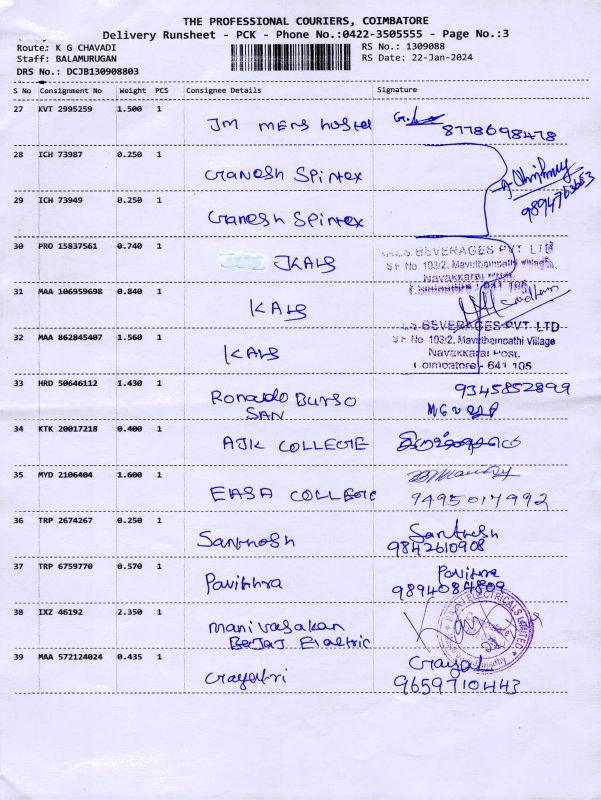 THE PROFESSIONAL COURIERS, COIMBATORE
Delivery Runsheet - PCK - Phone No.:0422-3505555 - Page No.:3
Route: K G CHAVADI
RS No.: 1309088
Staff: BALAMURUGAN
RS Date: 22-Jan-2024
DRS No.: DCJB130908803
S No Consignment No Weight PCS Consignee Details Signature
27 KVT 2995259 1.500 1 JM mens hostel
8778698478
28 ICH 73987 0.250 1 Ganesh Spintex
29 ICH 73949 0.250 1 Ganesh Spintex
30 PRO 15837561 0.740 1 KALS
BEVERAGES PVT LTD
S F No 103/2, Mavuthampathi Village
Navakkarai Post.
641 105
31 MAA 106959698 0.840 1 KALS
32 MAA 862845407 1.560 1 KALS
BEVERAGES PVT. LTD
S F No 103/2, Mavuthampathi Village
Navakkarai Post.
Coimbatore - 641 105
33 HRD 50646112 1.430 1 Ronaldo Burso
SAN
9345852899
34 KTK 20017218 0.400 1 AJK COLLEGE
35 MYD 2106404 1.600 1 EASA COLLEGE
9495017992
36 TRP 2674267 0.250 1 Santhosh
Santhosh
9842610908
37 TRP 6759770 0.570 1 Pavithra
Pavithra
9894084809
38 IXZ 46192 2.350 1 manivasakan
Berjaj Elactric
ELECTRICALS LIMITED
39 MAA 572124024 0.435 1 Gayatri
Gayat
9659710443